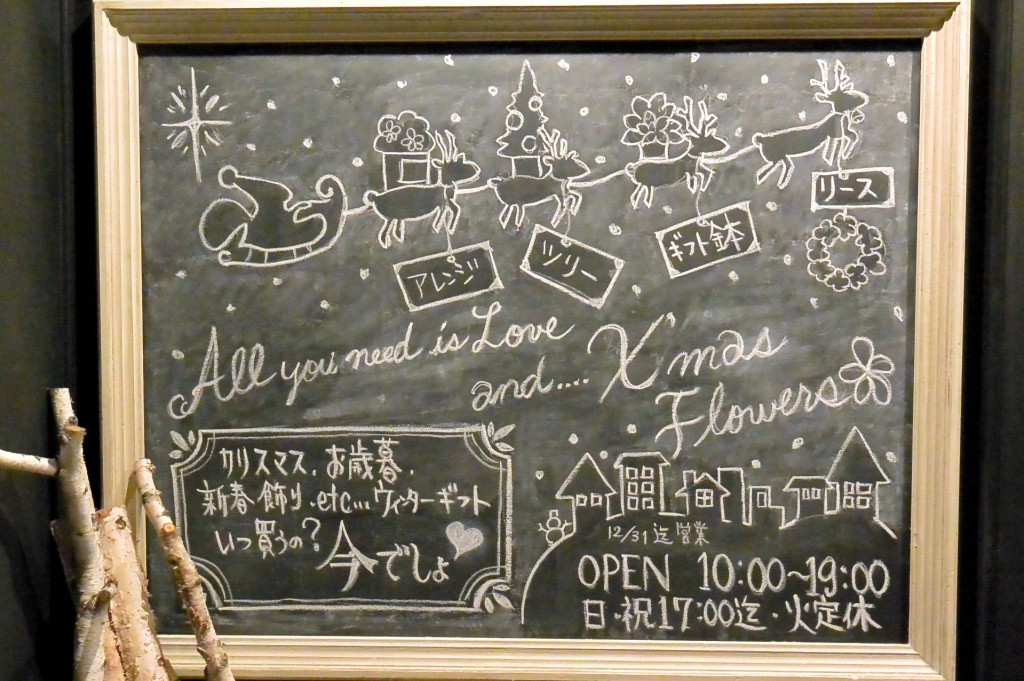 リース
ギフト鉢
ツリー
アレンジ
All you need is Love
and.... X'mas
Flowers
クリスマス.お歳暮.
新春飾り.etc...ウィンターギフト
いつ買うの?今でしょ
12/31迄営業
OPEN 10:00~19:00
日・祝17:00迄・火定休